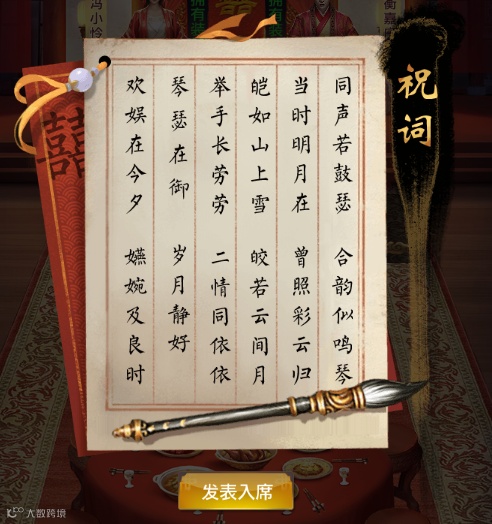 冯小怜
衡嘉
祝词
同声若鼓瑟 合韵似鸣琴
当时明月在 曾照彩云归
皑如山上雪 皎若云间月
举手长劳劳 二情同依依
琴瑟在御 岁月静好
欢娱在今夕 嬿婉及良时
囍
发表入席
大数跨境